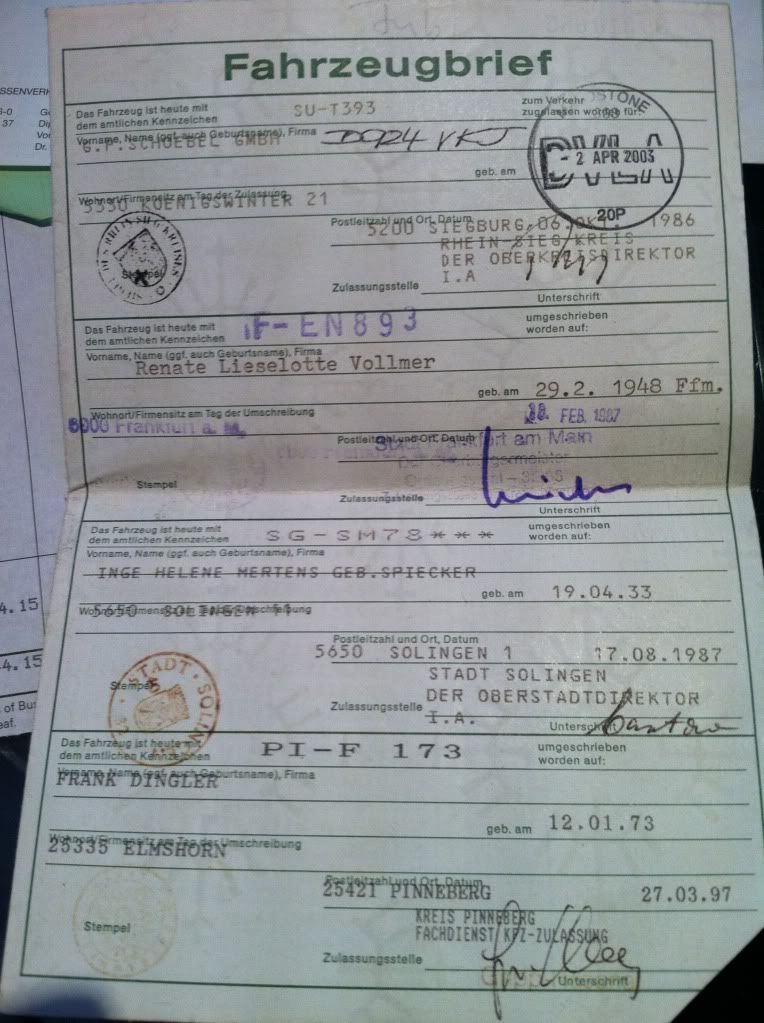 SSENVERK
Fahrzeugbrief
Das Fahrzeug ist heute mit
dem amtlichen Kennzeichen
SU-T393
zum Verkehr
zugelassen worden für:
Vorname, Name (ggf. auch Geburtsname), Firma
SCHOEBEL GMBH
geb. am
STONE
- 2 APR 2003
DVLA
20P
Wohnort/Firmensitz am Tag der Zulassung
5330 KOENIGSWINTER 21
Postleitzahl und Ort, Datum
5200 SIEGBURG, 06.OKT. 1986
RHEIN-SIEG-KREIS
DER OBERKREISDIREKTOR
I.A
Stempel
Zulassungsstelle
Unterschrift
Das Fahrzeug ist heute mit
dem amtlichen Kennzeichen
F-EN893
umgeschrieben
worden auf:
Vorname, Name (ggf. auch Geburtsname), Firma
Renate Lieselotte Vollmer
geb. am 29.2. 1948 Ffm.
Wohnort/Firmensitz am Tag der Umschreibung
6000 Frankfurt a. M.
FEB. 1987
Postleitzahl und Ort, Datum
Stadt Frankfurt am Main
Stempel
Zulassungsstelle
Unterschrift
Das Fahrzeug ist heute mit
dem amtlichen Kennzeichen
SG-SM78***
umgeschrieben
worden auf:
Vorname, Name (ggf. auch Geburtsname), Firma
INGE HELENE MERTENS GEB.SPIECKER
geb. am 19.04.33
Wohnort/Firmensitz am Tag der Umschreibung
5650 SOLINGEN 11
Postleitzahl und Ort, Datum
5650 SOLINGEN 1 17.08.1987
STADT SOLINGEN
DER OBERSTADTDIREKTOR
I.A.
STADT SOLIN
Stempel
Zulassungsstelle
Unterschrift
Das Fahrzeug ist heute mit
dem amtlichen Kennzeichen
PI-F 173
umgeschrieben
worden auf:
Vorname, Name (ggf. auch Geburtsname), Firma
FRANK DINGLER
geb. am 12.01.73
Wohnort/Firmensitz am Tag der Umschreibung
25335 ELMSHORN
Postleitzahl und Ort, Datum
25421 PINNEBERG 27.03.97
KREIS PINNEBERG
FACHDIENST KFZ-ZULASSUNG
Stempel
Zulassungsstelle
Unterschrift
4.15
4.15
of Bus
eaf.